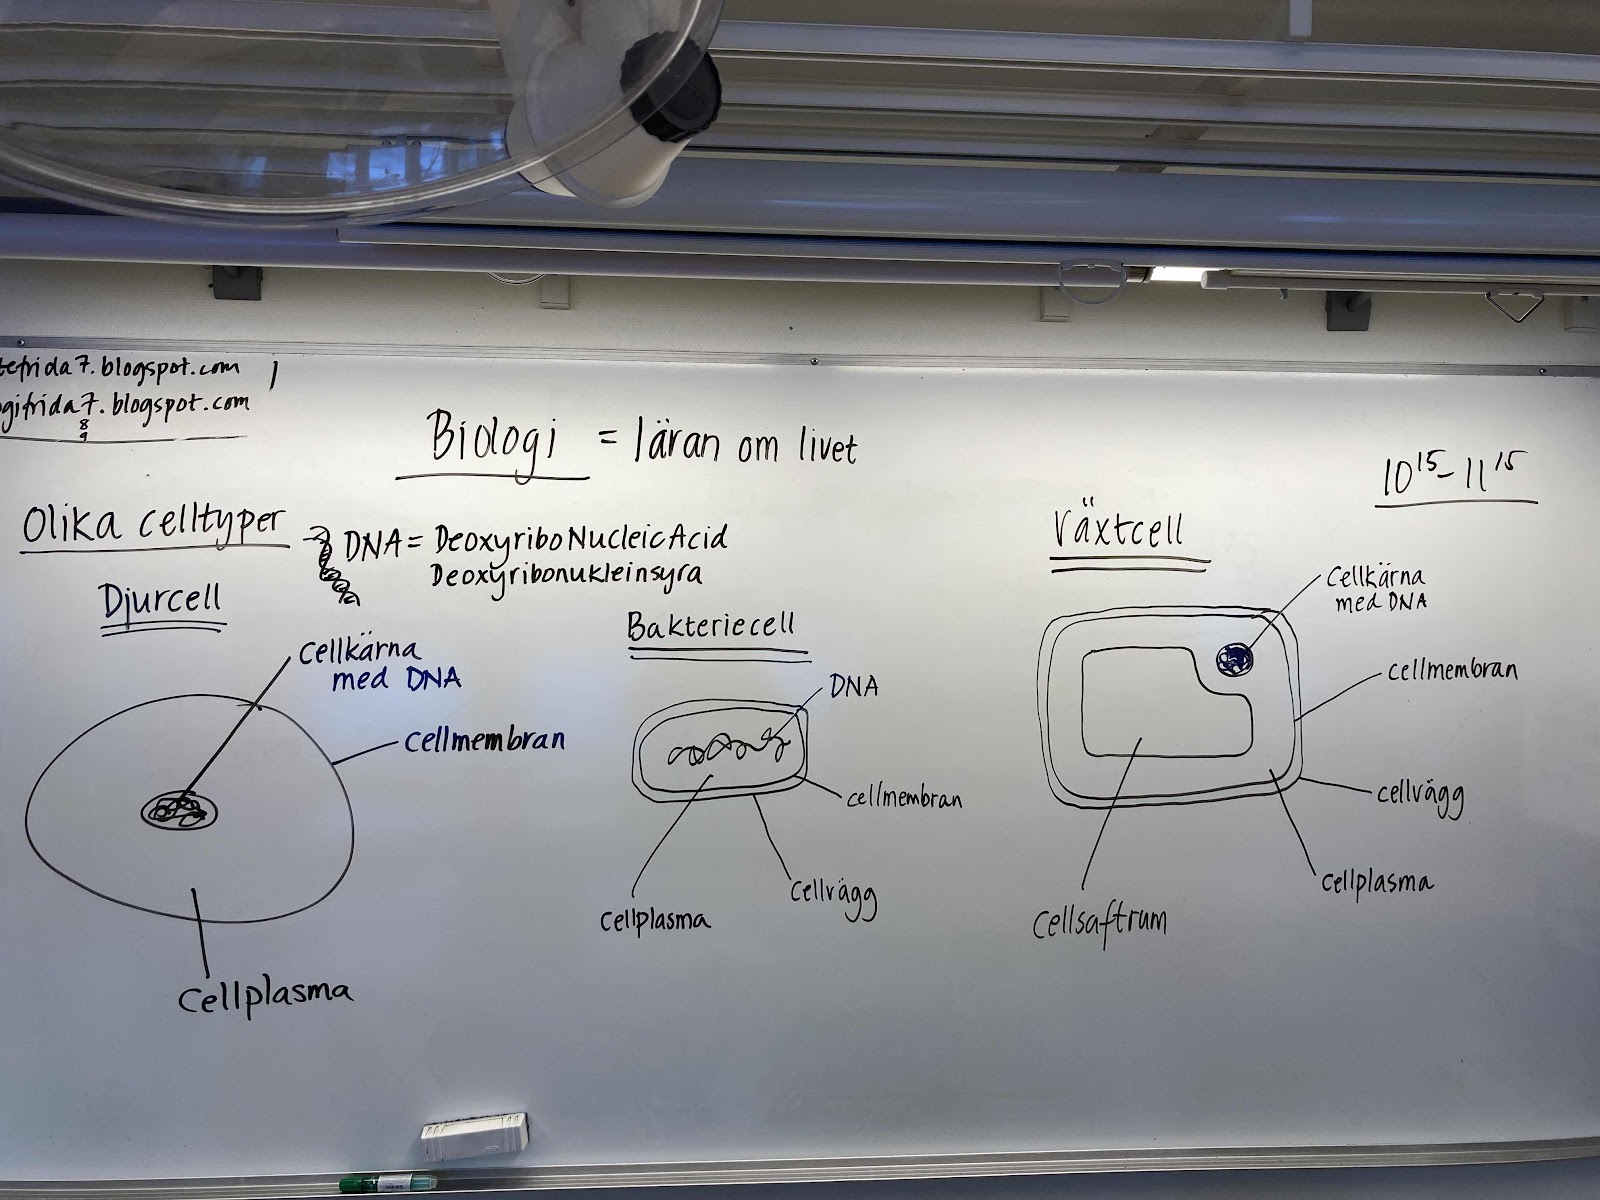 tefrida7.blogspot.com
ogifrida7.blogspot.com
8
9
Biologi = läran om livet
10 15 - 11 15
Olika celltyper
DNA = DeoxyriboNucleicAcid
Deoxyribonukleinsyra
Djurcell
cellkärna
med DNA
cellmembran
cellplasma
Bakteriecell
DNA
cellmembran
cellvägg
cellplasma
Växtcell
cellkärna
med DNA
cellmembran
cellvägg
cellplasma
cellsaftrum